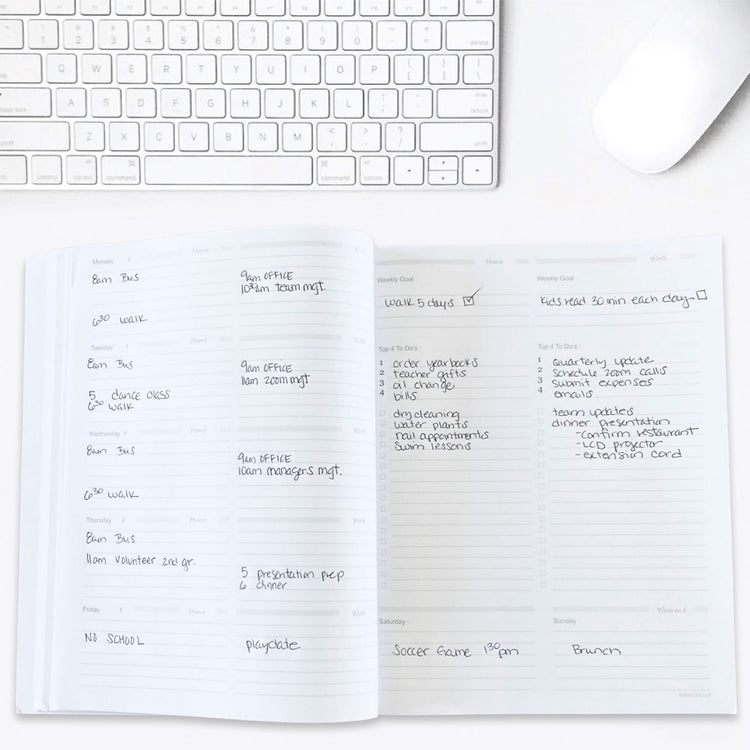 ! 1 @ 2 # 3 $ 4 % 5 ^ 6 & 7 * 8 ( 9 ) 0 - + = delete
Q W E R T Y U I O P { [ } ] | \
caps lock A S D F G H J K L : ; return
Z X C V B N M < , > . ? / shift
control option command command option
Monday / Home Work
8am Bus
9am OFFICE
10:30am team mgt.
6:30 walk
Tuesday / Home Work
8am Bus
9am OFFICE
11am zoom mgt
5 dance class
6:30 walk
Wednesday / Home Work
8am Bus
9am OFFICE
10am managers mgt.
6:30 walk
Thursday / Home Work
8am Bus
11am volunteer 2nd gr.
5 presentation prep
6 dinner
Friday / Home Work
NO SCHOOL
playdate
Home
Weekly Goal :
walk 5 days
Top 4 To Do's :
1 order yearbooks
2 teacher gifts
3 oil change
4 bills
dry cleaning
water plants
nail appointments
swim lessons
Work
Weekly Goal :
Kids read 30 min each day
Top 4 To Do's :
1 Quarterly update
2 Schedule zoom calls
3 Submit expenses
4 emails
team updates
dinner presentation
-confirm restaurant
-LCD projector
-extension cord
Weekend
Saturday :
Soccer Game 1:30 pm
Sunday
Brunch